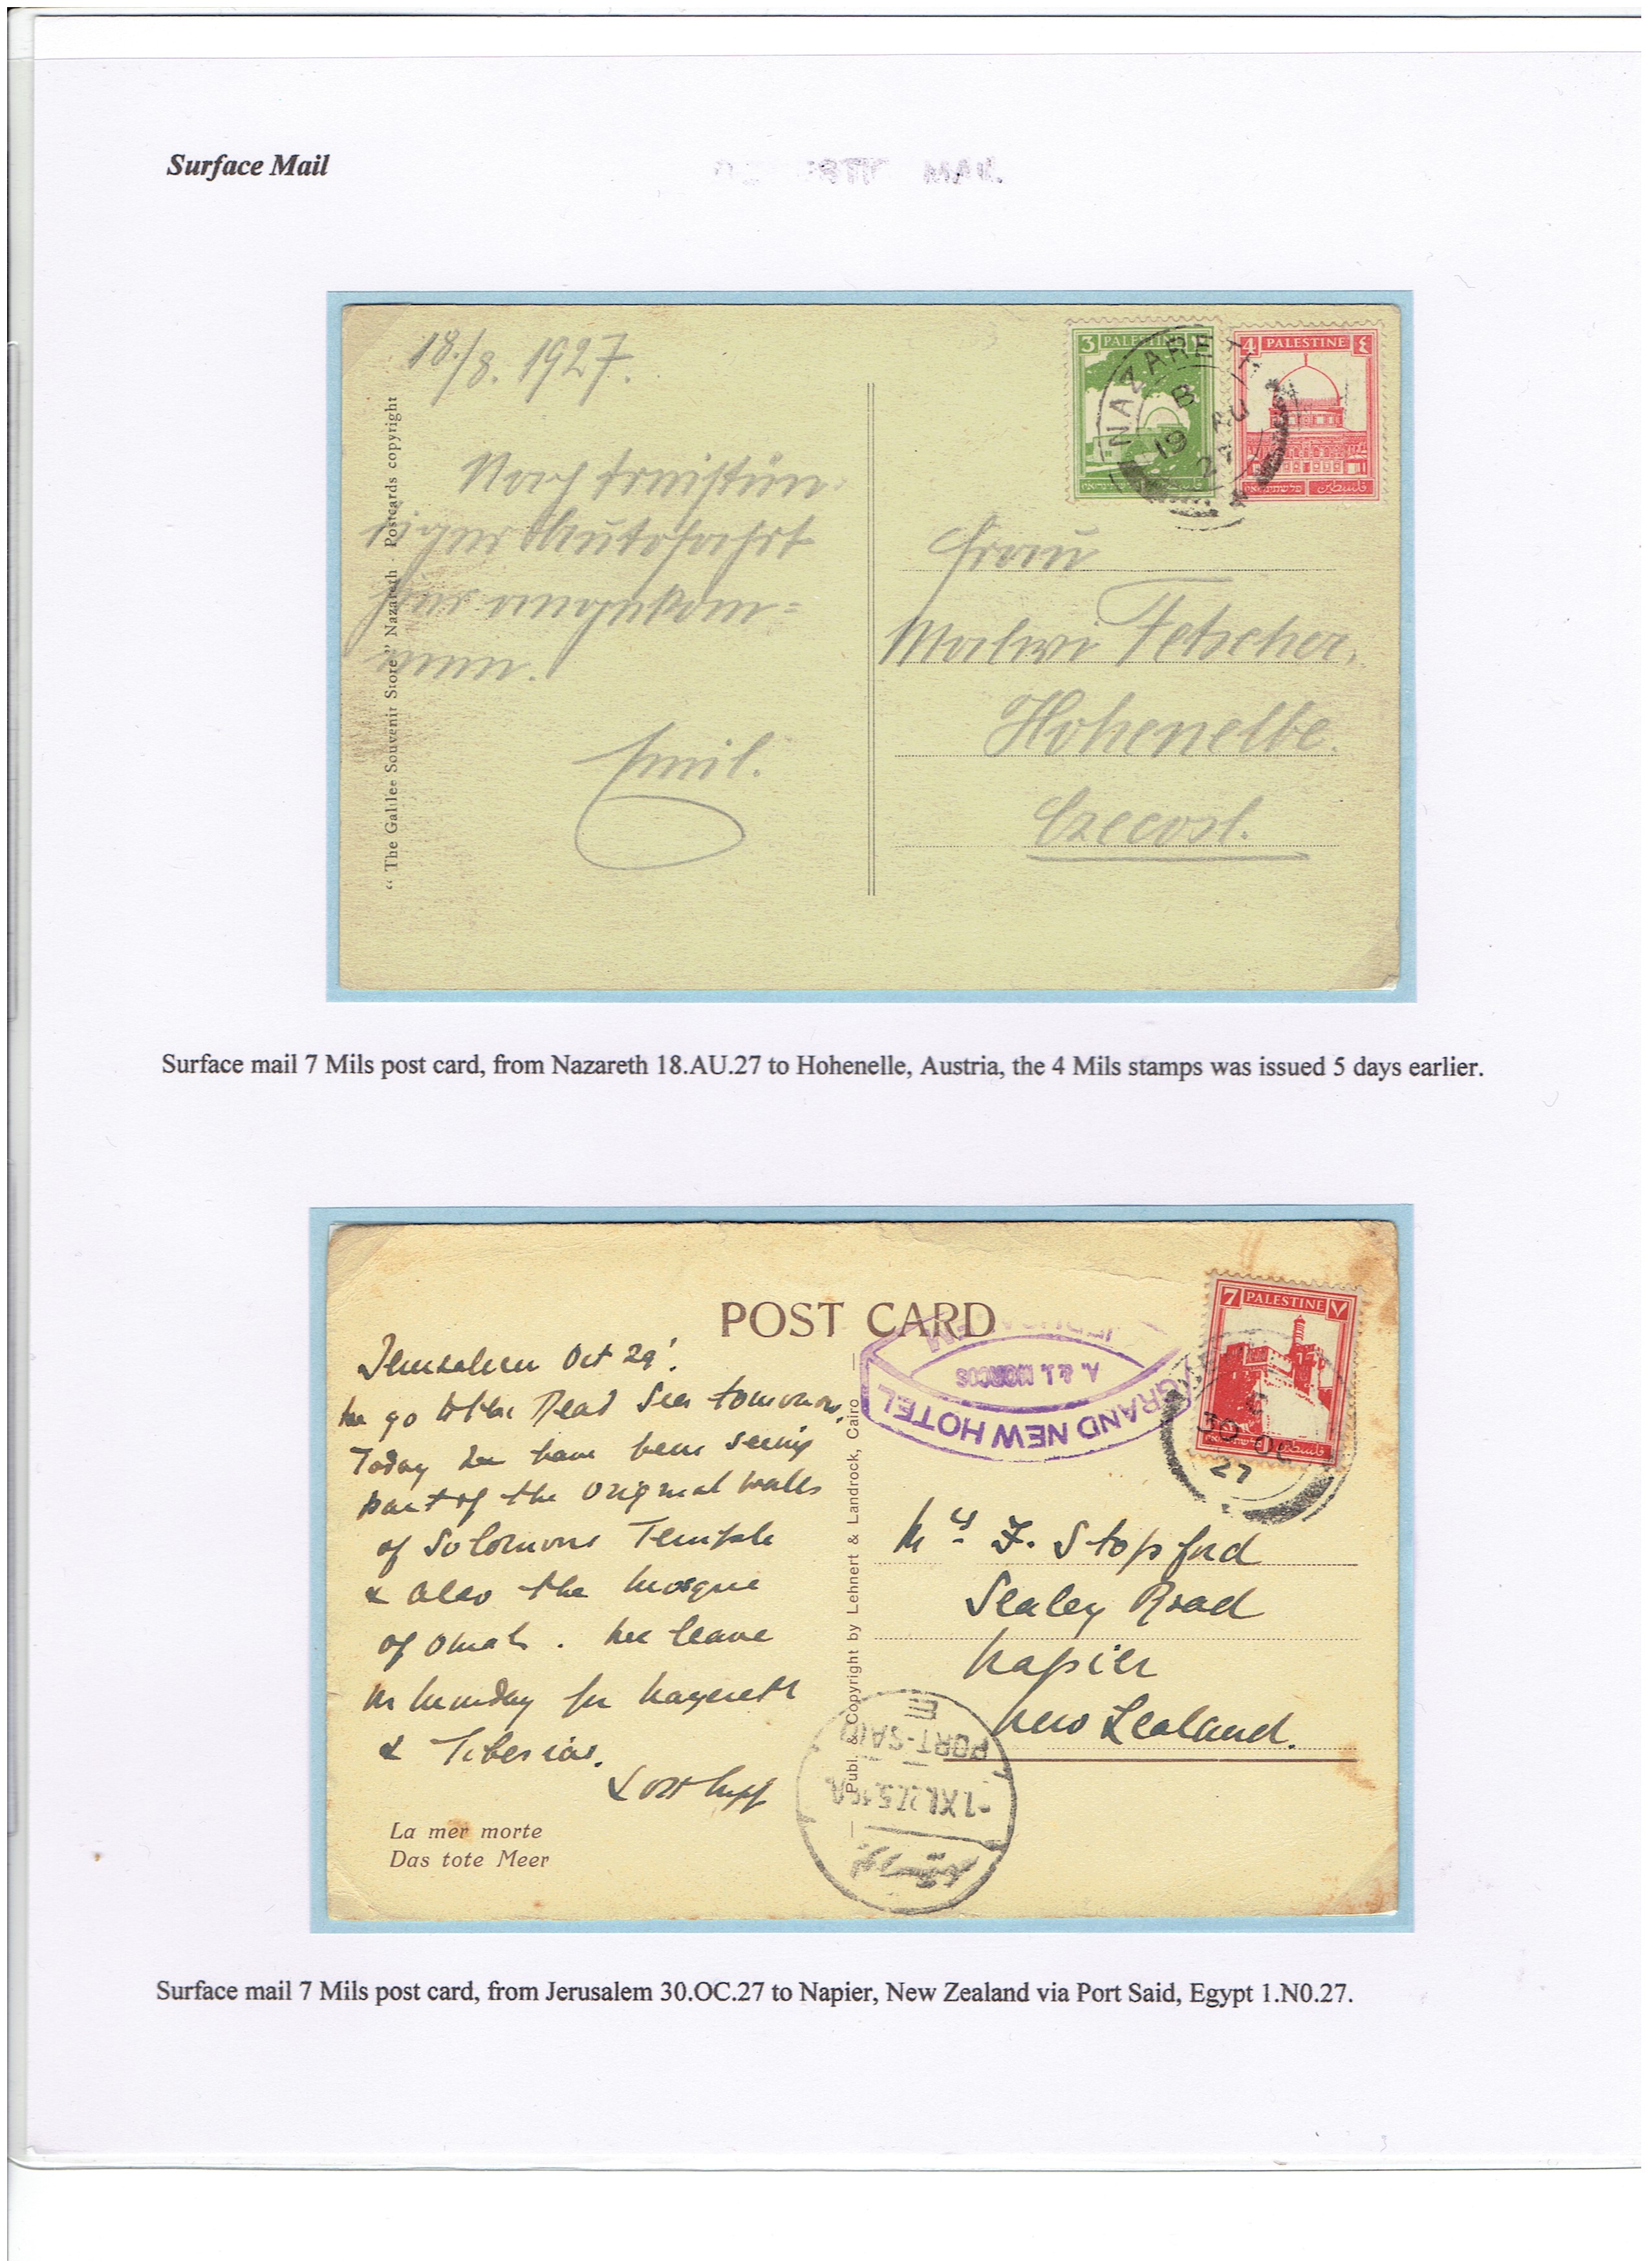 Surface Mail
MAIL
18./8. 1927.
Nach dreistün-
diger Autofahrt
hier angekom=
men.
Emil.
"The Galilee Souvenir Store" Nazareth. Postcards copyright
3 PALESTINE ٣
4 PALESTINE ٤
فلسطين פלשתינה א״י
NAZARETH
B
19 AU
27
Frau
Malwi Fetscher,
Hohenelbe.
Czecosl.
Surface mail 7 Mils post card, from Nazareth 18.AU.27 to Hohenelle, Austria, the 4 Mils stamps was issued 5 days earlier.
POST CARD
Jerusalem Oct 29'.
We go to the Dead Sea tomorrow.
Today we have been seeing
part of the original walls
of Solomons Temple
& also the Mosque
of Omah. We leave
on Monday for Nazareth
& Tiberias.
La mer morte
Das tote Meer
Publ. & Copyright by Lehnert & Landrock, Cairo
GRAND NEW HOTEL
A. & J. MORCOS
JERUSALEM
7 PALESTINE ٧
فلسطين פלשתינה א״י
30 OC
27
Mrs F. Stopford
Sealey Road
Napier
New Zealand.
PORT-SAID
E
-1.XI.27.5
بورسعيد
Surface mail 7 Mils post card, from Jerusalem 30.OC.27 to Napier, New Zealand via Port Said, Egypt 1.N0.27.